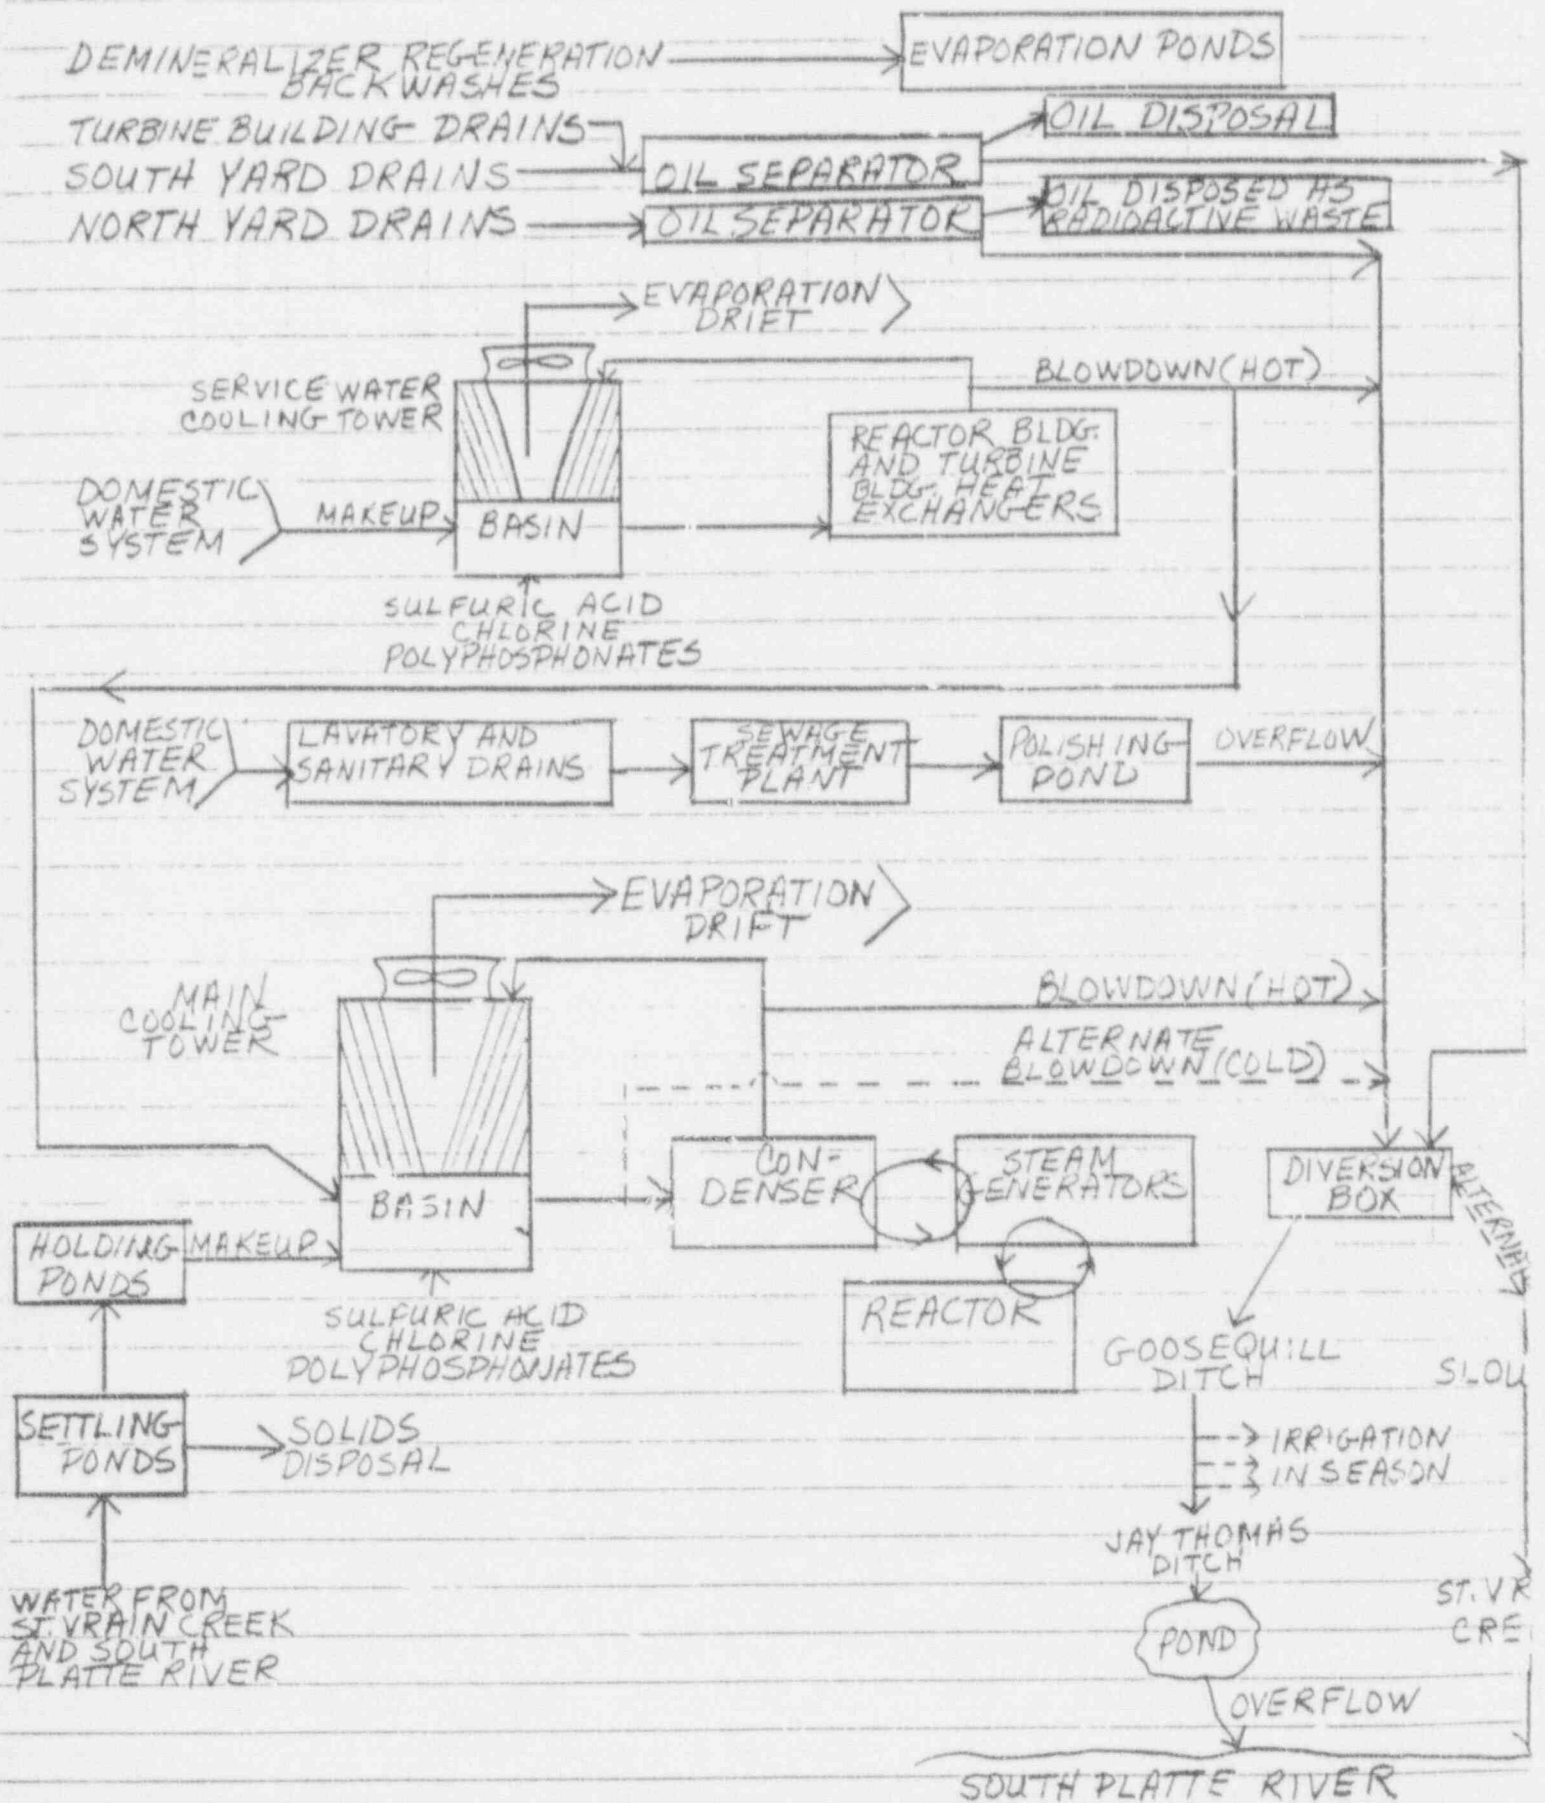 DEMINERALIZER REGENERATION
BACKWASHES
EVAPORATION PONDS
TURBINE BUILDING DRAINS
OIL DISPOSAL
SOUTH YARD DRAINS
OIL SEPARATOR
NORTH YARD DRAINS
OIL SEPARATOR
OIL DISPOSED AS
RADIOACTIVE WASTE
EVAPORATION
DRIFT
SERVICE WATER
COOLING TOWER
BLOWDOWN (HOT)
REACTOR BLDG.
AND TURBINE
BLDG. HEAT
EXCHANGERS
DOMESTIC
WATER
SYSTEM
MAKEUP
BASIN
SULFURIC ACID
CHLORINE
POLYPHOSPHONATES
DOMESTIC
WATER
SYSTEM
LAVATORY AND
SANITARY DRAINS
SEWAGE
TREATMENT
PLANT
POLISHING
POND
OVERFLOW
EVAPORATION
DRIFT
MAIN
COOLING
TOWER
BLOWDOWN (HOT)
ALTERNATE
BLOWDOWN (COLD)
BASIN
CON-
DENSER
STEAM
GENERATORS
DIVERSION
BOX
ALTERNA
HOLDING
PONDS
MAKEUP
SULFURIC ACID
CHLORINE
POLYPHOSPHONATES
REACTOR
GOOSEQUILL
DITCH
SLOU
SETTLING
PONDS
SOLIDS
DISPOSAL
IRRIGATION
IN SEASON
JAY THOMAS
DITCH
WATER FROM
ST. VRAIN CREEK
AND SOUTH
PLATTE RIVER
ST. VR
CRE
POND
OVERFLOW
SOUTH PLATTE RIVER